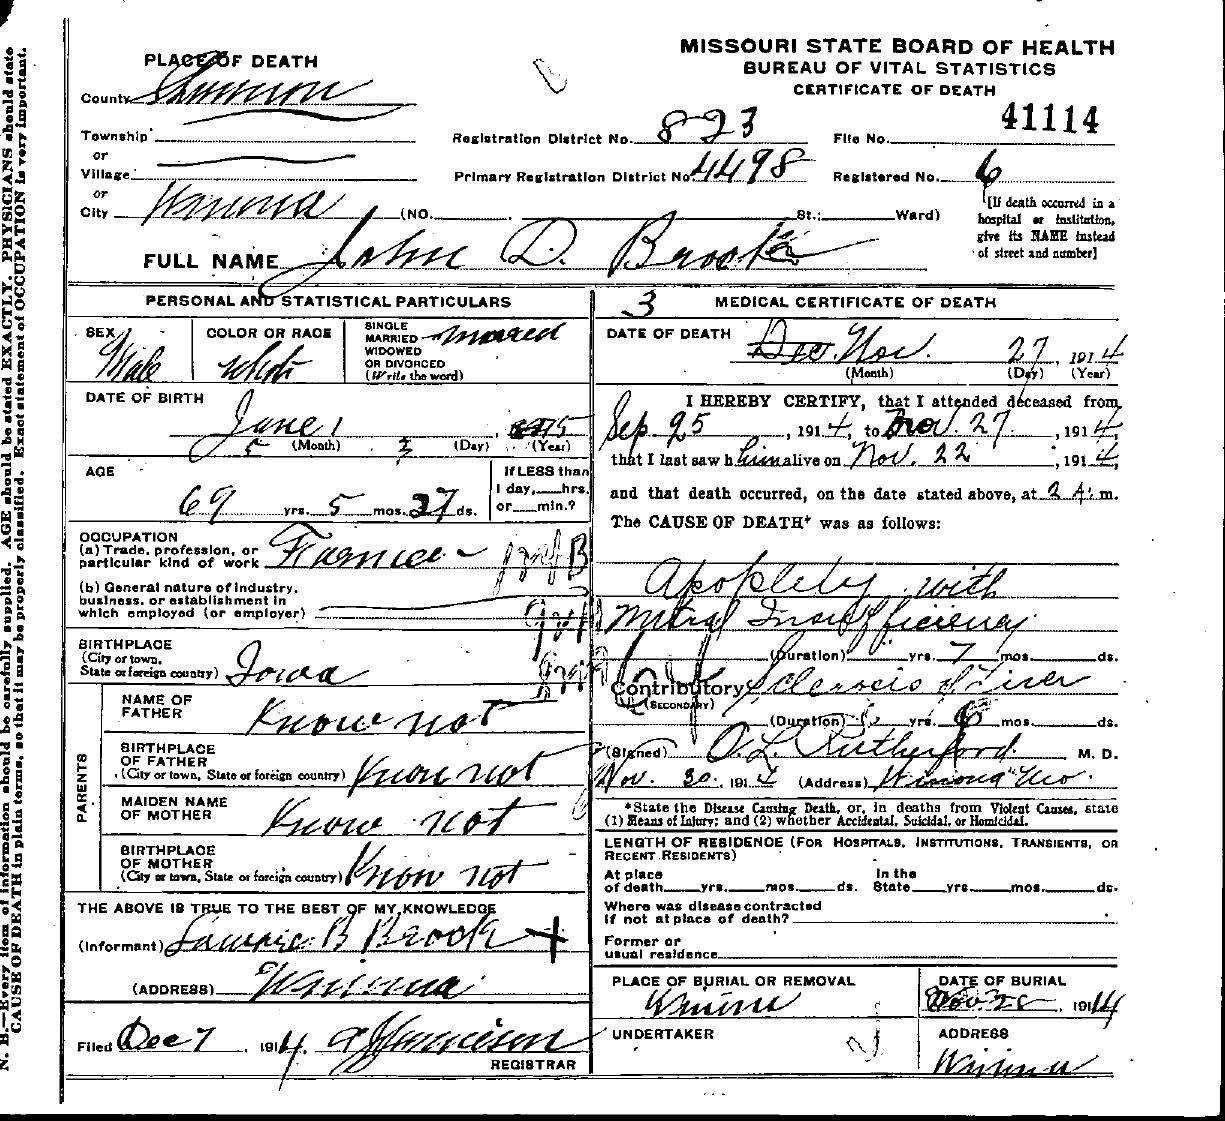 MISSOURI STATE BOARD OF HEALTH
BUREAU OF VITAL STATISTICS
CERTIFICATE OF DEATH
PLACE OF DEATH
County Shannon
Township
or
Village
or
City Winona (NO. St.; Ward)
Registration District No. 823
Primary Registration District No. 4498
File No. 41114
Registered No. 6
[If death occurred in a
hospital or institution,
give its NAME instead
of street and number]
FULL NAME John D. Brook
PERSONAL AND STATISTICAL PARTICULARS
SEX
Male
COLOR OR RACE
White
SINGLE
MARRIED
WIDOWED
OR DIVORCED
(Write the word)
married
DATE OF BIRTH
June 1
(Month) (Day) (Year)
AGE
69 yrs. 5 mos. 27 ds.
If LESS than
1 day, hrs.
or min.?
OCCUPATION
(a) Trade, profession, or
particular kind of work Farmer
(b) General nature of industry,
business, or establishment in
which employed (or employer)
BIRTHPLACE
(City or town,
State or foreign country) Iowa
PARENTS
NAME OF
FATHER Know not
BIRTHPLACE
OF FATHER
(City or town, State or foreign country) Know not
MAIDEN NAME
OF MOTHER Know not
BIRTHPLACE
OF MOTHER
(City or town, State or foreign country) Know not
THE ABOVE IS TRUE TO THE BEST OF MY KNOWLEDGE
(Informant) B Brook
(ADDRESS) Winona
Filed Dec 7, 1914
REGISTRAR
3 MEDICAL CERTIFICATE OF DEATH
DATE OF DEATH
Dec. Nov. 27, 1914
(Month) (Day) (Year)
I HEREBY CERTIFY, that I attended deceased from
Sep. 25, 1914, to Nov. 27, 1914,
that I last saw him alive on Nov. 22, 1914,
and that death occurred, on the date stated above, at 2 A. m.
The CAUSE OF DEATH* was as follows:
Apoplexy with
Mitral Insufficiency
(Duration) yrs. 7 mos. ds.
Contributory Sclerosis of Liver
(SECONDARY)
(Duration) yrs. mos. ds.
(Signed) O. L. Rutherford M. D.
Nov. 30, 1914 (Address) Winona Mo.
*State the Disease Causing Death, or, in deaths from Violent Causes, state
(1) Means of Injury; and (2) whether Accidental, Suicidal, or Homicidal.
LENGTH OF RESIDENCE (FOR HOSPITALS, INSTITUTIONS, TRANSIENTS, OR
RECENT RESIDENTS)
At place
of death yrs. mos. ds.
In the
State yrs. mos. ds.
Where was disease contracted
if not at place of death?
Former or
usual residence
PLACE OF BURIAL OR REMOVAL
Winona
DATE OF BURIAL
Nov 28, 1914
UNDERTAKER
ADDRESS
Winona
N. B.—Every item of information should be carefully supplied. AGE should be stated EXACTLY. PHYSICIANS should state
CAUSE OF DEATH in plain terms, so that it may be properly classified. Exact statement of OCCUPATION is very important.